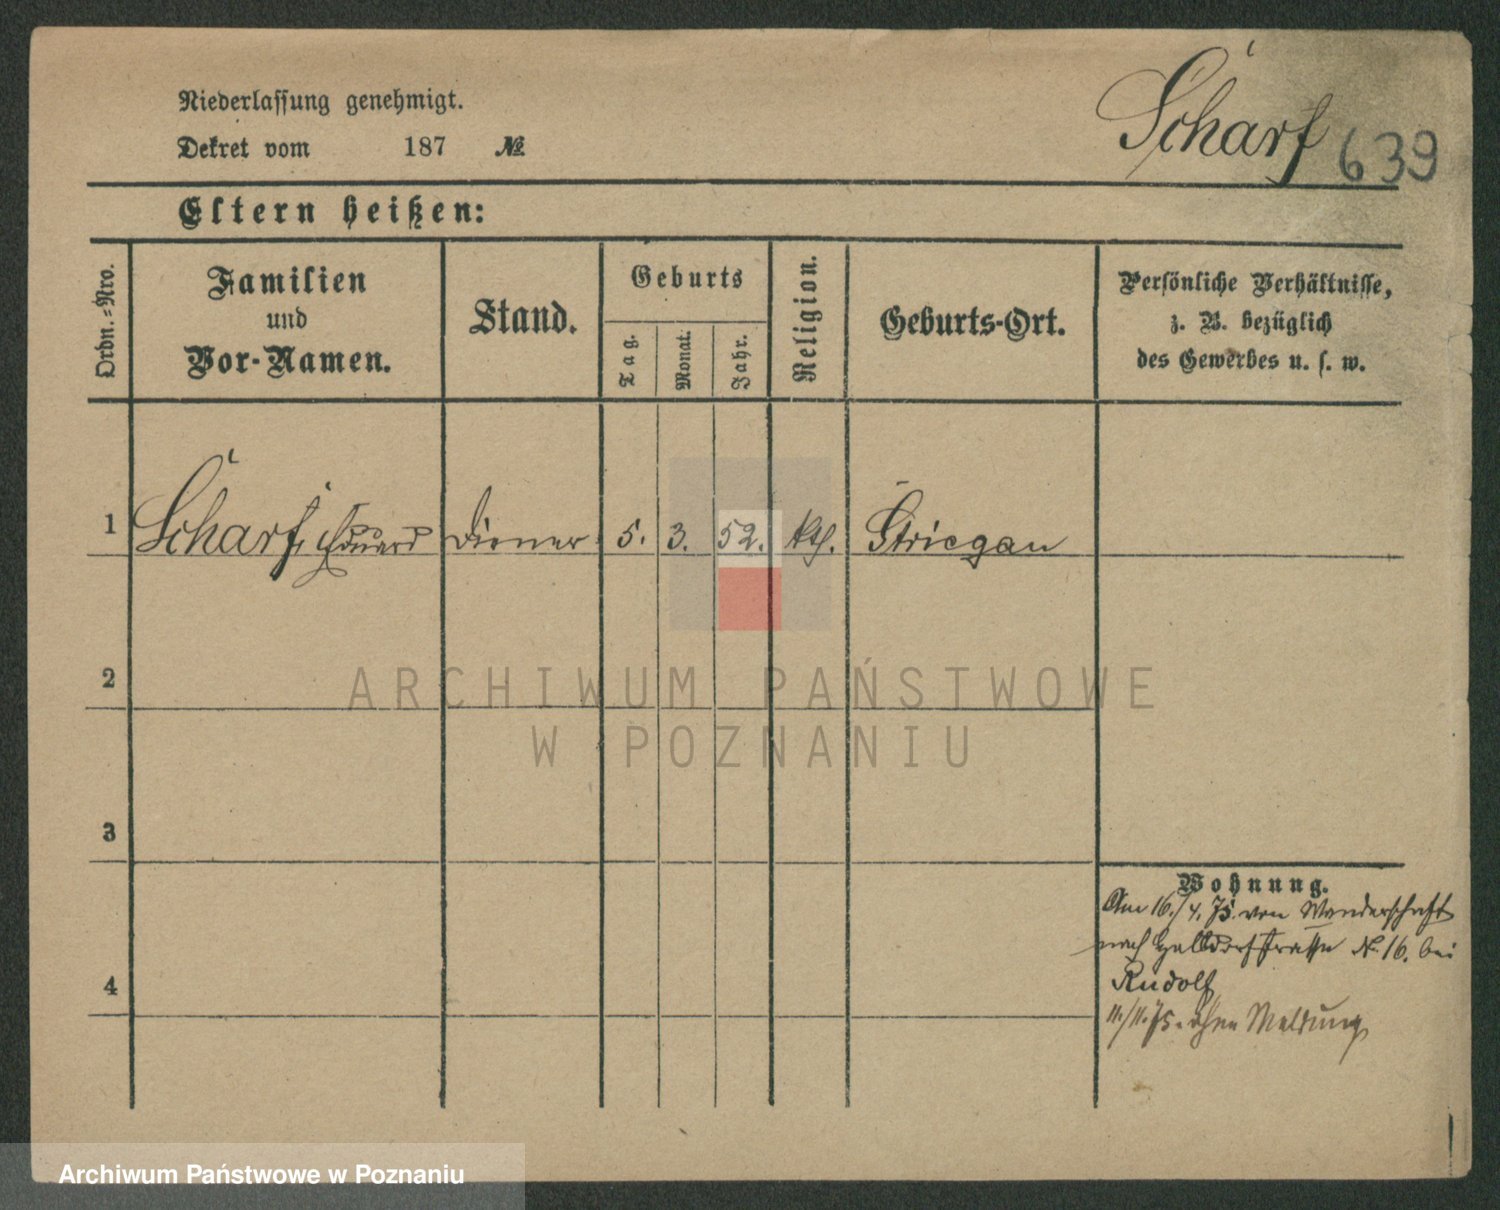 Niederlassung genehmigt.
Dekret vom 187 №
Scharf 639
Eltern heißen:
Ordn.-Nro.
Familien
und
Vor-Namen.
Stand.
Geburts
Tag.
Monat.
Jahr.
Religion.
Geburts-Ort.
Persönliche Verhältnisse,
z. B. bezüglich
des Gewerbes u. s. w.
1 Scharf, Eduard Diener 5. 3. 52. kth. Striegau
2
3
4
Wohnung.
Am 16./4. 75. von Wanderschaft
nach Halbdorfstrasse No. 16. bei
Rudolf
11./11. 75. ohne Meldung
ARCHIWUM PAŃSTWOWE
W POZNANIU
Archiwum Państwowe w Poznaniu